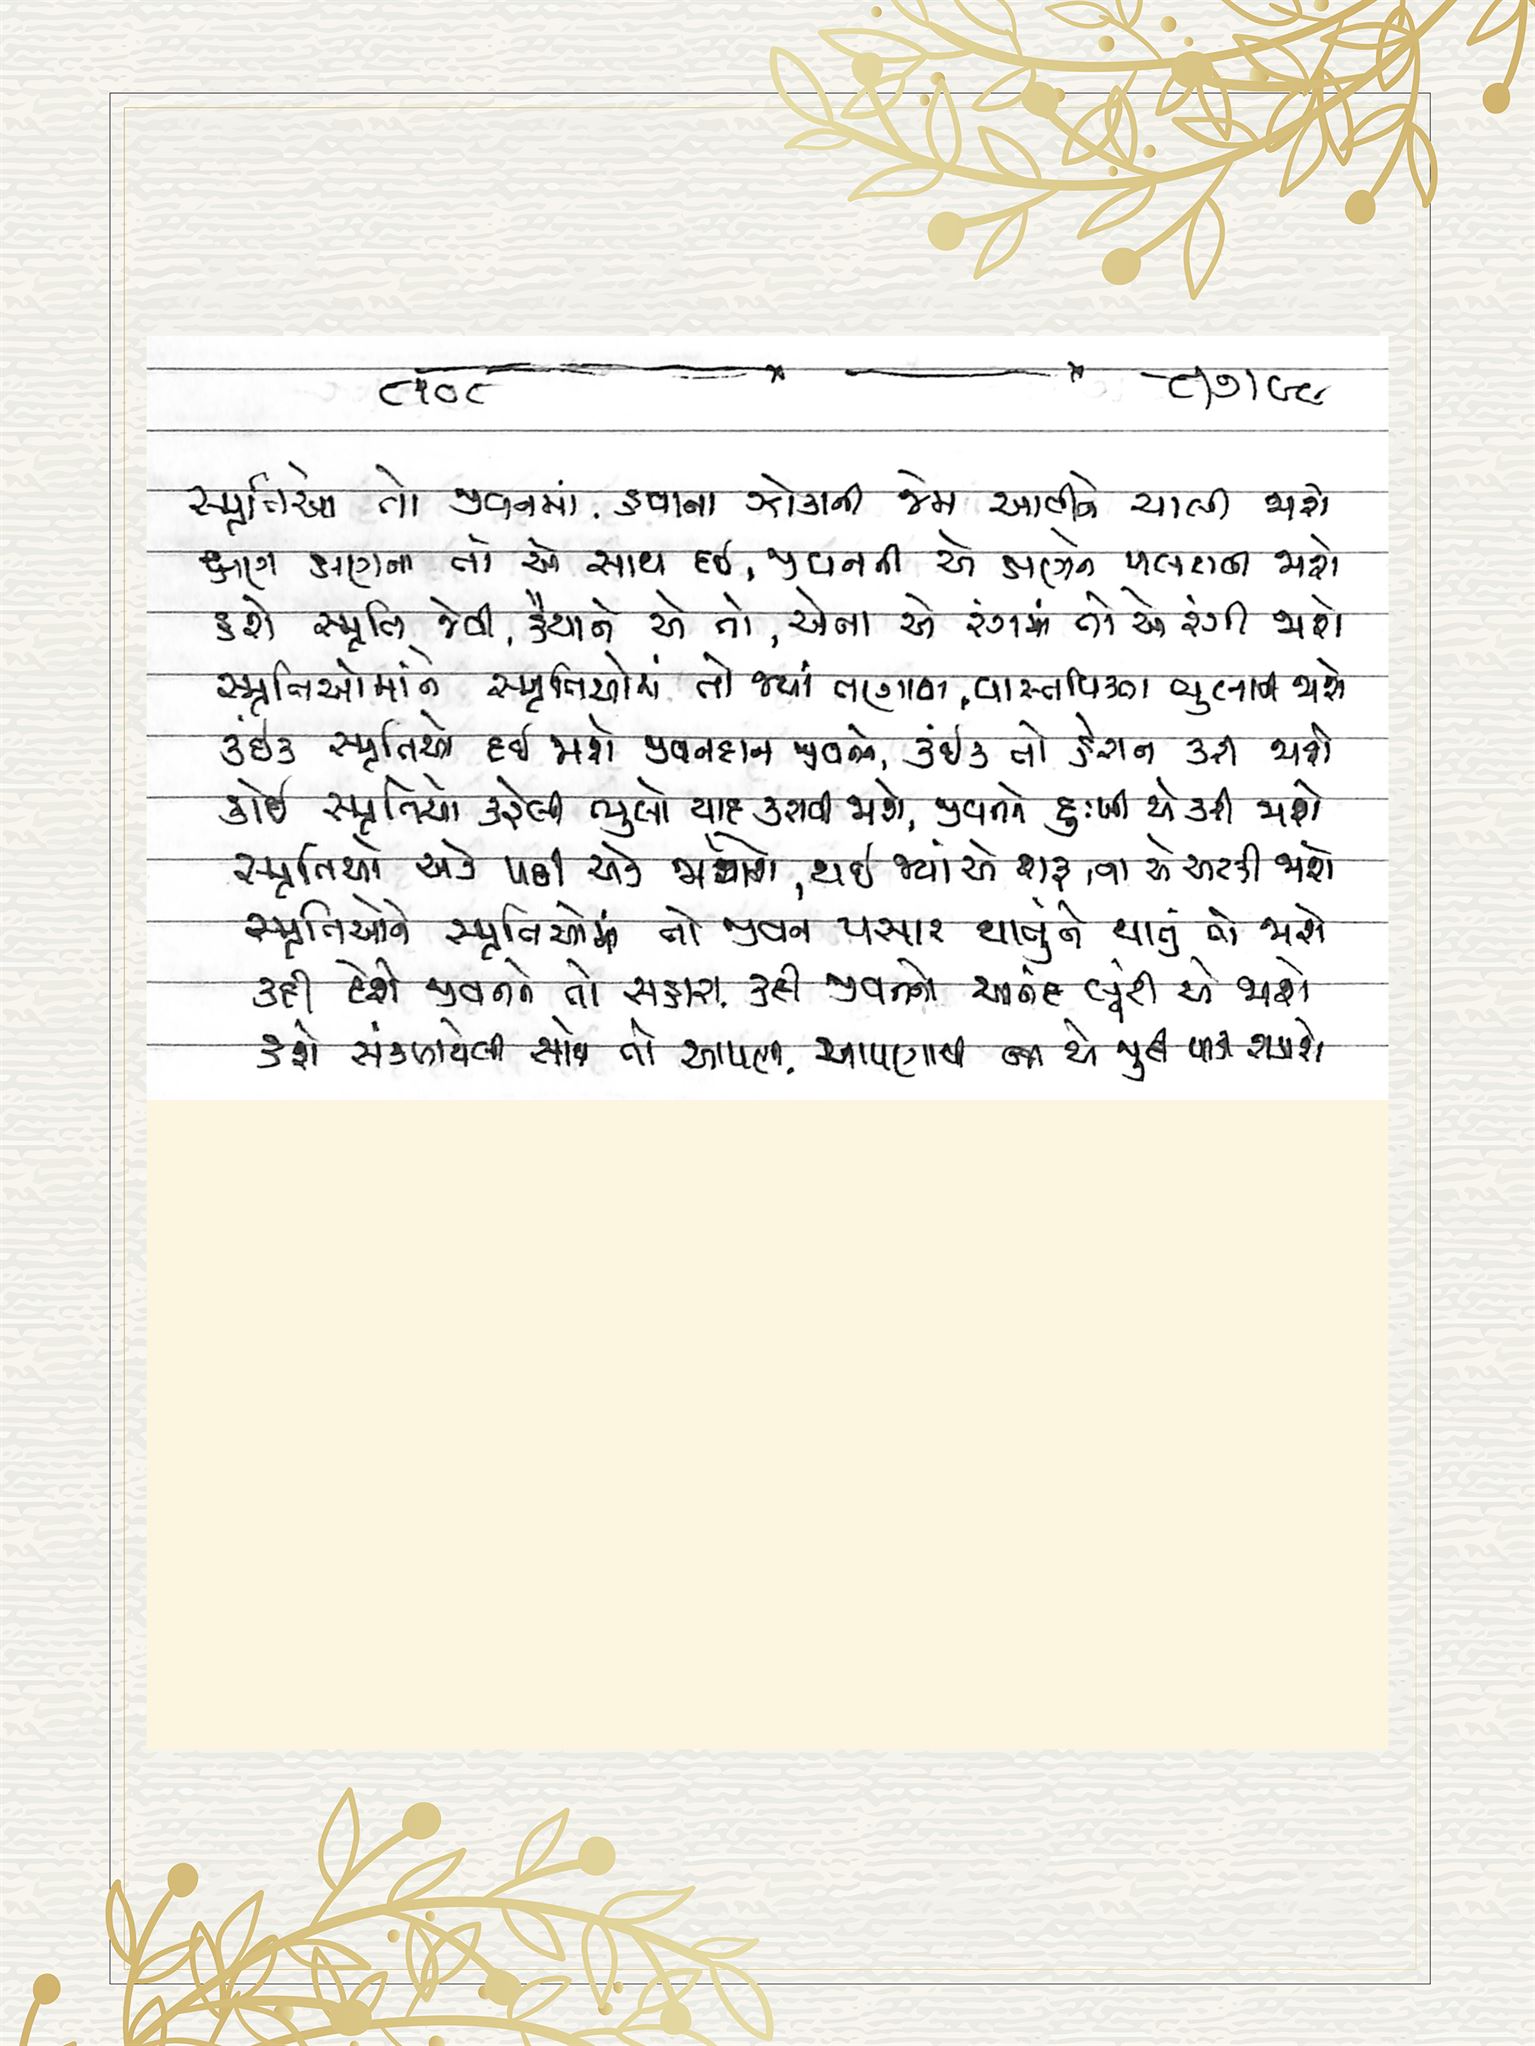 ૮૫૦૮ ૮/૭/૮૯
સ્મૃતિઓ તો જીવનમાં, હવાના ઝોકાની જેમ આવીને ચાલી જાશે
ક્ષણે ક્ષણેના તો એ સાથ દઈ, જીવનની એ ક્ષણેને પલટાવી જાશે
હશે સ્મૃતિ જેવી, હૈયાને એ તો, એના એ રંગમાં તો એ રંગી જાશે
સ્મૃતિઓમાંને સ્મૃતિઓમાં તો જ્યાં તણાયા, વાસ્તવિક્તા ભુલાવી જાશે
કંઈક સ્મૃતિઓ દઈ જાશે જીવનદાન જીવનને, કંઈક તો હેરાન કરી જાશે
કોઈ સ્મૃતિઓ કરેલી ભૂલો યાદ કરાવી જાશે, જીવનને દુઃખી એ કરી જાશે
સ્મૃતિઓ એક પછી એક જાગશે, થઈ જ્યાં એ શરૂ, ના એ અટકી જાશે
સ્મૃતિઓને સ્મૃતિઓમાં તો જીવન પસાર થાતુંને થાતું તો જાશે
કદી દેશે જીવનને તો સહારા, કદી જીવનનો આનંદ લૂંટી એ જાશે
હશે સંકળાયેલી સાથે તો આપણી, આપણાથી ના એ જુદી પાડી શકાશે